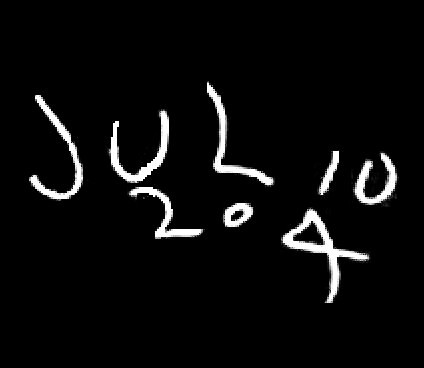 JUL 10
204